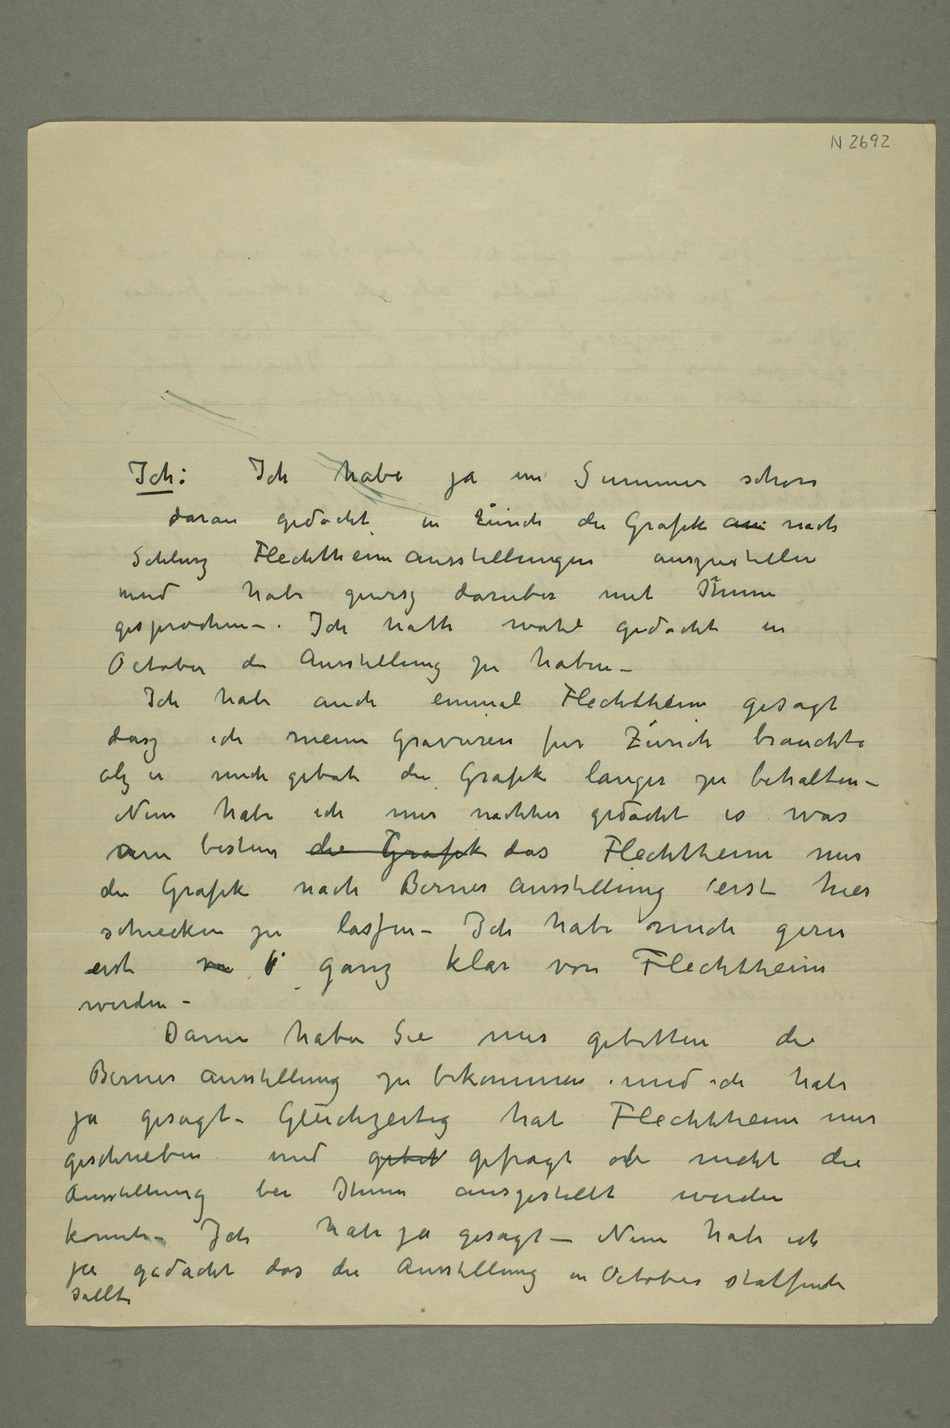 N 2692
Ich: Ich habe ja im Summer schon
daran gedacht in Zürich die Grafik nach
Schlusz Flechtheim ausstellungen auszustellen
und habe gewisz daruber mit Ihnen
gesprochen–. Ich hatte wohl gedacht in
October die Ausstellung zu haben –
Ich habe auch einmal Flechtheim gesagt
dasz ich meine Gravuren fur Zürich brauchte
alz er mich gebat die Grafik langer zu behalten –
Nun habe ich mir nachher gedacht es was
am besten die Grafik das Flechtheim mir
die Grafik nach Berner Ausstellung erst hier
schicken zu lassen – Ich habe mich gern
erst ganz klar von Flechtheim
werden –
Dann haben Sie mir gebetten die
Berner Ausstellung zu bekommen und ich habe
ja gesagt – Gleichzeitig hat Flechtheim mir
geschrieben und gebet gefragt ob nicht die
Ausstellung bei Ihnen ausgestellt werden
konnte – Ich habe ja gesagt – Nun habe ich
ja gedacht das die Ausstellung in October stattfinde
sollte